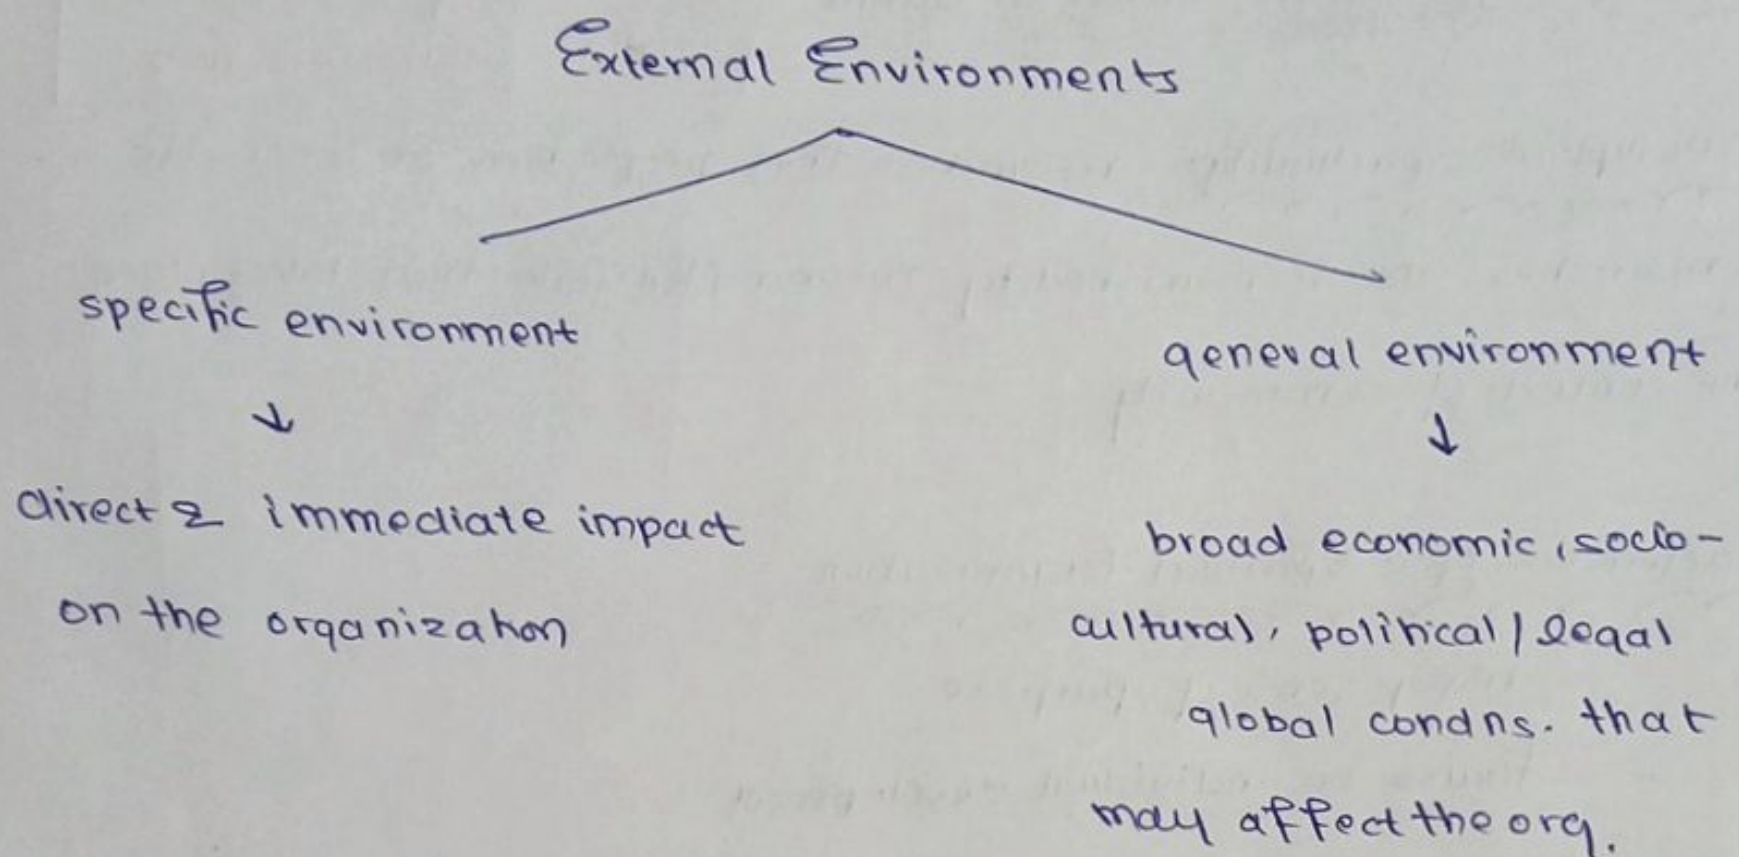 External Environments
specific environment
↓
direct & immediate impact
on the organization
general environment
↓
broad economic, socio-
cultural, political / legal
global condns. that
may affect the org.